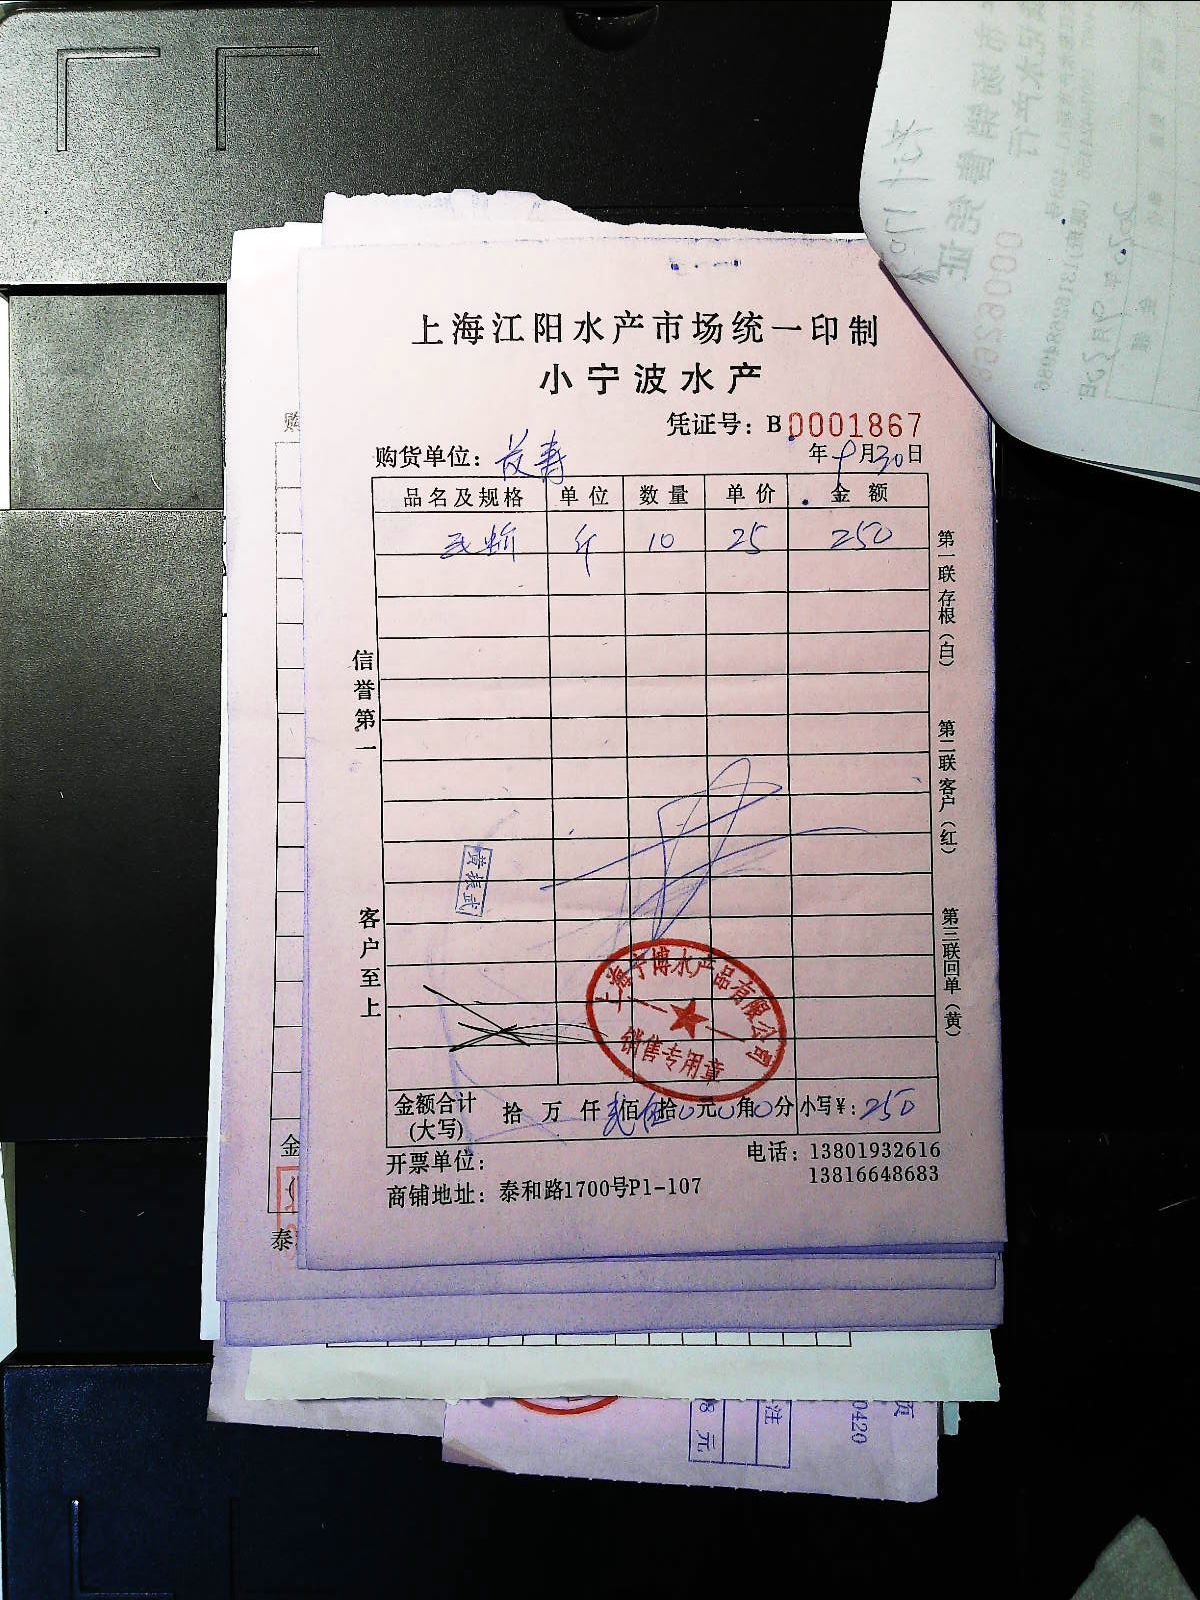 上海江阳水产市场统一印制
小宁波水产
凭证号：B 0001867
购货单位： 年 9月30日
品名及规格 单位 数量 单价 金额
斤 10 25 250
信誉第一
客户至上
第一联存根（白）
第二联客户（红）
第三联回单（黄）
黄振武
上海宁博水产品有限公司
销售专用章
金额合计（大写） 拾 万 仟 贰佰 伍拾 0元 0角 0分 小写¥：250
开票单位： 电话：13801932616
13816648683
商铺地址：泰和路1700号P1-107
购
金
泰
元
注
页
0420